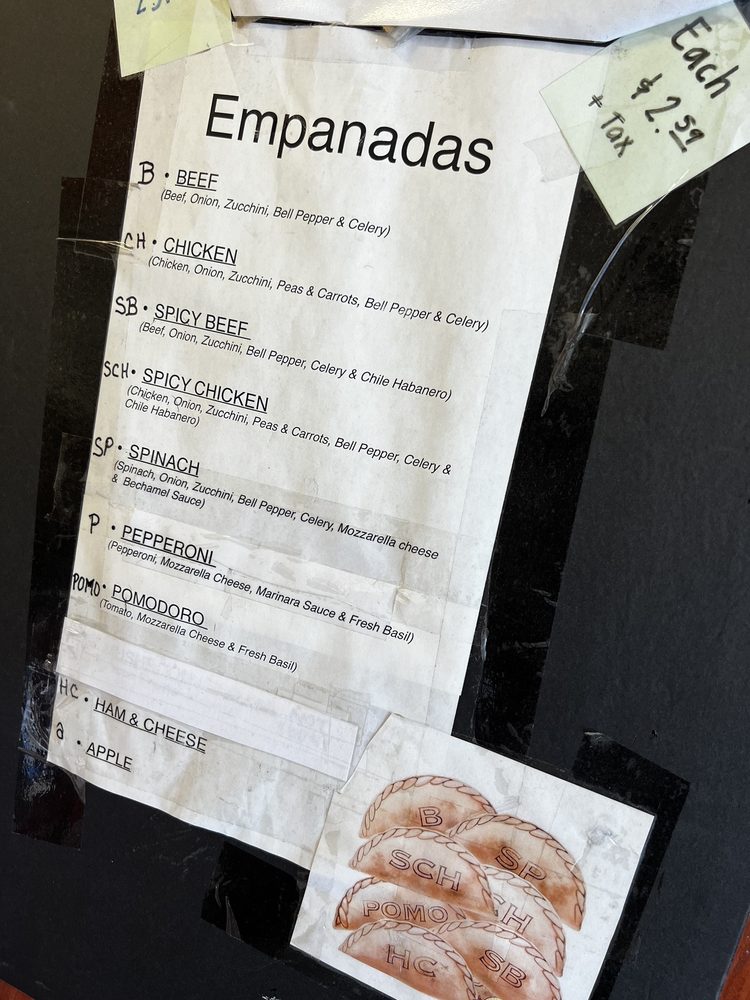 Each
$2.59
+ Tax
Empanadas
B • BEEF
(Beef, Onion, Zucchini, Bell Pepper & Celery)
CH • CHICKEN
(Chicken, Onion, Zucchini, Peas & Carrots, Bell Pepper & Celery)
SB • SPICY BEEF
(Beef, Onion, Zucchini, Bell Pepper, Celery & Chile Habanero)
SCH • SPICY CHICKEN
(Chicken, Onion, Zucchini, Peas & Carrots, Bell Pepper, Celery &
Chile Habanero)
SP • SPINACH
(Spinach, Onion, Zucchini, Bell Pepper, Celery, Mozzarella cheese
& Bechamel Sauce)
P • PEPPERONI
(Pepperoni, Mozzarella Cheese, Marinara Sauce & Fresh Basil)
POMO • POMODORO
(Tomato, Mozzarella Cheese & Fresh Basil)
HC • HAM & CHEESE
a • APPLE
B
SP
SCH
CH
POMO
SB
HC